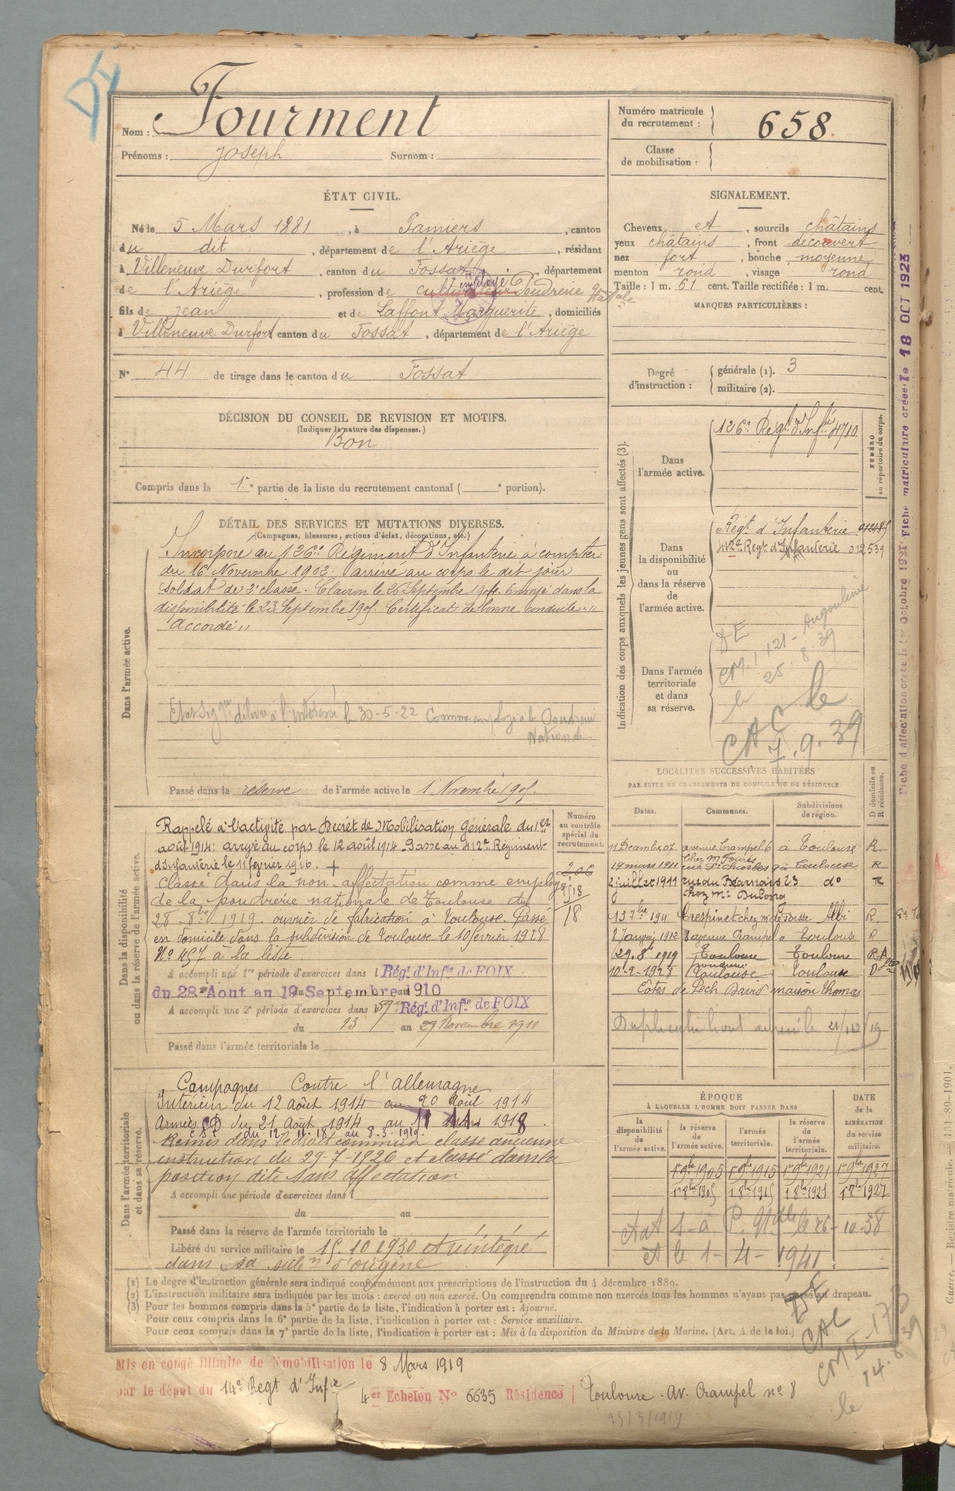 Nom : Fourment
Prénoms : Joseph Surnom :
Numéro matricule du recrutement : 658.
Classe de mobilisation :
ÉTAT CIVIL.
Né le 5 Mars 1881, à Pamiers, canton
du dit, département de l'Ariège, résidant
à Villeneuve Durfort, canton du Fossat, département
de l'Ariège, profession de cultivateur employé Poudrerie Natale
fils de Jean et de Laffont Marguerite, domiciliés
à Villeneuve Durfort canton du Fossat, département de l'Ariège
N° 44 de tirage dans le canton du Fossat
SIGNALEMENT.
Cheveux et, sourcils châtains
yeux châtains, front découvert
nez fort, bouche moyenne
menton rond, visage rond
Taille : 1 m. 61 cent. Taille rectifiée : 1 m. cent.
MARQUES PARTICULIÈRES :
Degré d'instruction : générale (1). 3
militaire (2).
DÉCISION DU CONSEIL DE REVISION ET MOTIFS.
(Indiquer la nature des dispenses.)
Bon
Compris dans la 1e partie de la liste du recrutement cantonal ( e portion).
DÉTAIL DES SERVICES ET MUTATIONS DIVERSES.
(Campagnes, blessures, actions d'éclat, décorations, etc.)
Dans l'armée active.
Incorporé au 126e Régiment d'Infanterie à compter
du 16 Novembre 1902. arrivé au corps le dit jour
soldat de 2e classe. Clairon le 20 Septembre 190 . Envoyé dans la
disponibilité le 23 Septembre 1905. Certificat de bonne conduite
"Accordé"
délivré à l'intéressé le 30-5-22 Comme employé à la Poudrerie
Nationale
Passé dans la réserve de l'armée active le 1 Novembre 1905.
Indication des corps auxquels les jeunes gens sont affectés (3).
Dans l'armée active.
126e Regt d'Infie 4710
NUMÉRO au répertoire du corps.
Dans la disponibilité ou dans la réserve de l'armée active.
Regt d'Infanterie
412e Regt d'Infanterie 012539
Dans l'armée territoriale et dans sa réserve.
DE
CM. I 121 - Angoulême
le 25. 8. 39
CAC le
7. 9. 39
Fiche matriculaire créée le 18 OCT 1923
Dans la disponibilité ou dans la réserve de l'armée active.
Numéro au contrôle spécial du recrutement.
Rappelé à l'activité par Décret de Mobilisation Générale du 1er
août 1914: arrivé au corps le 12 août 1914. Passé au 412e Régiment
d'Infanterie le 1 février 1916. +
classé dans la non affectation comme employé
de la poudrerie nationale de Toulouse du
28-8bre 1919. ouvrier de fabrication à Toulouse. Passé
en domicile dans la subdivision de Toulouse le 10 février 1928
N° 457 à la liste
A accompli une 1re période d'exercices dans l Rég. d'Infie de FOIX
du 28 Aout au 19 Septembre 1910
A accompli une 2e période d'exercices dans l 59e Rég. d'Infie de FOIX
du 13 au 29 Novembre 1911
Passé dans l'armée territoriale le
LOCALITÉS SUCCESSIVES HABITÉES
PAR SUITE DE CHANGEMENTS DE DOMICILE OU DE RÉSIDENCE
Dates. Communes. Subdivisions de région. D domicile ou R résidence.
avenue Crampel 6 à Toulouse R
19 mars 1911 rue St Charles 9 à Toulouse R
2 juillet 1911 rue du Béarnais 23 do R
13 7bre 191 Crespinet chez Mr de Fosse Albi R
avenue Crampel à Toulouse R
29.8 1919 Toulouse Toulouse R.A
10-2-1928 Toulouse Toulouse D
Côtes de Pech David maison Thomas
Dans l'armée territoriale et dans sa réserve.
Campagnes Contre l'Allemagne
Intérieur du 12 Août 1914 au 20 Août 1914
Armées CD du 21 Août 1914 au 11 11 1918
CSC du 12-11-18 au 8-3-1919.
classe ancienne
instruction du 29-7-1926 et classé dans la
position dite sans affectation
A accompli une période d'exercices dans l
du au
Passé dans la réserve de l'armée territoriale le
Libéré du service militaire le 15.10 1930 et réintégré
dans sa subdon d'origine
ÉPOQUE
À LAQUELLE L'HOMME DOIT PASSER DANS
DATE de la LIBÉRATION du service militaire.
la disponibilité de l'armée active. la réserve de l'armée active. l'armée territoriale. la réserve de l'armée territoriale.
1 9bre 1905 1 9bre 1915 1 9bre 1921 1 9bre 1927
1 8bre 1905 1 8bre 1915 1 8bre 1921 1 7bre 1927
26-10-38
et le 1-4-1941
(1) Le degré d'instruction générale sera indiqué conformément aux prescriptions de l'instruction du 4 décembre 1889.
(2) L'instruction militaire sera indiquée par les mots : exercé ou non exercé. On comprendra comme non exercés tous les hommes n'ayant pas passé au drapeau.
(3) Pour les hommes compris dans la 5e partie de la liste, l'indication à porter est : Ajourné.
Pour ceux compris dans la 6e partie de la liste, l'indication à porter est : Service auxiliaire.
Pour ceux compris dans la 7e partie de la liste, l'indication à porter est : Mis à la disposition du Ministre de la Marine. (Art. 4 de la loi.)
DE
CAC
CM I-173
le 14.8.39
Mis en congé illimité de démobilisation le 8 Mars 1919
par le dépôt du 14e Regt d'Infie 4er Echelon N° 6635 Résidence Toulouse - Av. Crampel n° 8